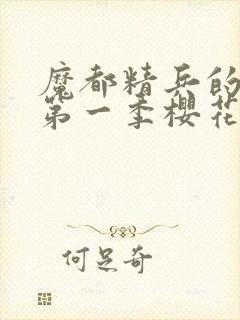 魔都精兵的
第一季樱花
何足奇